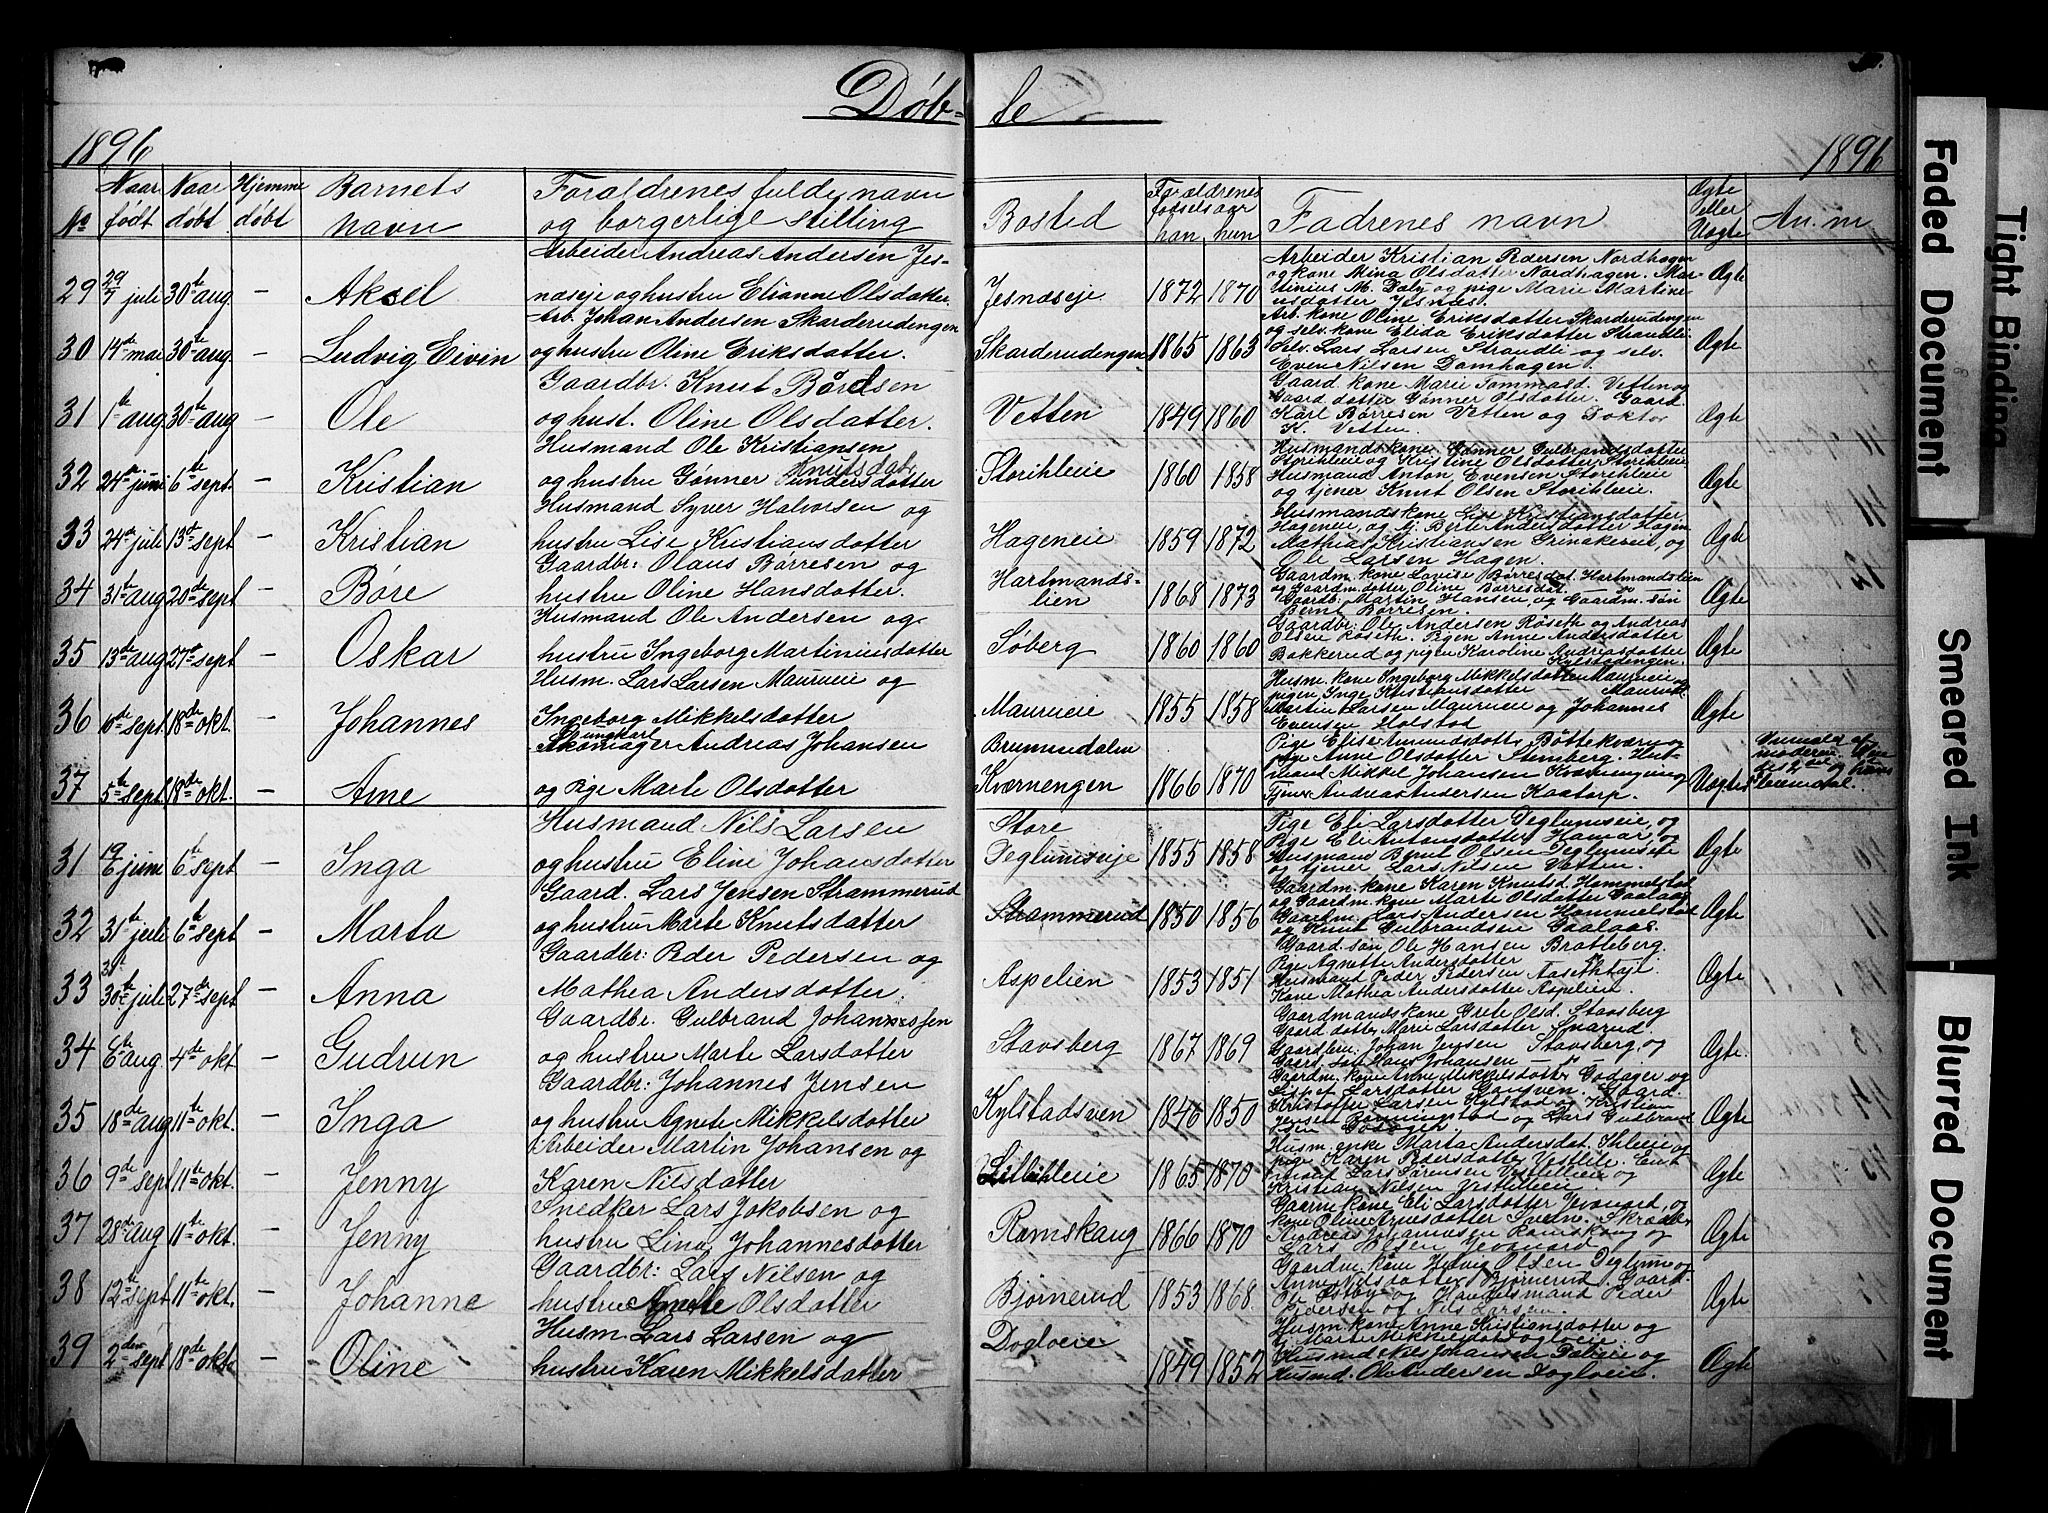 Døb-
te
1896
1896
No
Naar født
Naar døbt
Hjemme døbt
Barnets navn
Foraldrenes fulde navn og borgerlige stilling
Bosted
Forældrenes fødselsaar han hun
Fadrenes navn
Ægte eller Uægte
An. m
29 29/7 juli 30te aug. – Aksel
Arbeider Andreas Andersen Jes-
næseje og hustru Elianne Olsdatter.
Jesnæseje 1872 1870
Arbeider Kristian Pedersen Nordhagen
og kone Mina Olsdatter Nordhagen. Mar-
tinius M. Daly og pige Marie Martine
usdatter Jesnæs.
Ægte
30 14de mai 30te aug – Ludvig Eivin
Arb. Johan Andersen Skarderudengen
og hustru Oline Eriksdatter.
Skarderudengen 1865 1863
Arb. kone Oline Eriksdatter Skarderudengen
og selv. kone Elida Eriksdatter Strandli
Selv. Lars Larsen Strandli og selv.
Even Nilsen Domhagen.
Ægte
31 1te aug 30te aug – Ole
Gaardbr. Knut Bördsen
og hust. Oline Olsdatter.
Vetten 1849 1860
Gaard. kone Marie Tommasd. Vetten og
Gaard datter Gønner Olsdatter. Gaard.
Karl Børresen Vetten og Doktor
K. Vetten.
Ægte
32 24de juni 6te sept. – Kristian
Husmand Ole Kristiansen
og hustru Gønner Knutsdat.
Storihleie 1860 1858
Husmandskone Gønner Gulbrandsdatter
Storihleie og Kristine Olsdatter Storihleie
Husmand Anton Evensen Storihleie
og tjener Knut Olsen Storihleie.
Ægte
33 24de juli 13de sept – Kristian
Husmand Syver Halvorsen og
hustru Lise Kristiansdatter
Hageneie 1859 1872
Husmandskone Lise Kristiansdatter
Hageneie, og tj. Berte Andersdatter Hagen
Mathias Kristiansen Grinakereie, og
Ole Larsen Hagen.
Ægte
34 31te aug 20de sept – Böre
Gaardbr: Olaus Børresen og
hustru Oline Hansdatter.
Hartmands-
lien 1868 1873
Gaardm. kone Lovise Børresdat. Hartmandslien
og Gaardm. datter Oline Børresdat.
Gaardbr: Martin Hansen, og Gaardm. søn
Bernt Børresen.
Ægte
35 13de aug 27de sept – Oskar
Husmand Ole Andersen og
hustru Ingeborg Martiniusdatter
Søberg 1860 1860
Gaardbr: Ole Andersen Röseth og Andreas
Olsen Röseth. Pigen Anne Andersdatter
Bakkerud og pigen Karoline Andreasdatter
Kylstadengen.
Ægte
36 10de sept. 18de okt. – Johannes
Husm. Lars Larsen Maurueie og
Ingeborg Mikkelsdatter
Maurueie 1855 1858
Husm. kone Ingeborg Mikkelsdatter Maurueie og
pigen Inge Kristiansdatter – Maurud.
Martin Larsen Maurueie og Johannes
Evensen Holstad
Ægte
37 5te sept 18de okt. – Arne
ungkarl
Skomager Andreas Johansen
og Pige Marte Olsdatter
Brumundalen
Kværnengen 1866 1870
Pige Elise Amundsdatts. Böttekværn og
pige Anne Olsdatter Stemberg. Hus-
mand Mikkel Johansen Kværnengen og
Tjener Andreas Andersen Kaatorp.
Uægte
31 19/6 juni 6te sept – Inga
Husmand Nils Larsen
og hustru Eline Johansdatter
Store
Deglumseje 1855 1858
Pige Eli Larsdatter Deglumseie, og
Pige Eli Antonsdatter Hamar, og
Husmand Bernt Olsen Deglumseie
og tjener Lars Nilsen Vetten.
Ægte
32 31te juli 6te sept – Marta
Gaard. Lars Jensen Strammerud
og hustru Marte Knutsdatter
Strammerud 1850 1856
Gaardm. kone Karen Knutsd. Hommelstad
og Gaardm. kone Marte Olsdatter Gaalaas
Gaardm. Lars Andersen Hommelstad
og Knut Gulbrandsen Gaalaas.
Ægte
33 30te juli 27de sept – Anna
Gaardbr: Peder Pedersen og
Mathea Andersdatter.
Aspelien 1853 1851
Gaard. søn Ole Hansen Bratteberg.
Pige Agnette Andersdatter
Husmand Peder Pedersen Aasetheje.
Kone Mathea Andersdatter Aspeleie.
Ægte
34 6te aug. 4de okt – Gudrun
Gaardbr. Gulbrand Johannessen
og hustru Marte Larsdatter
Stavsberg 1867 1869
Gaardmandskone Grete Olsd. Stavsberg
Gaard datter Marie Larsdatter Snarud.
Gaardbru. Johan Jensen Stavsberg, og
Gaard. søn Hans Johansen
Ægte.
35 18de aug 11te okt. – Inga
Gaardbr: Johannes Jensen
og hustru Agnete Mikkelsdatter
Kylstadsven 1846 1850
Gaardm. kone Anne Mikkelsdatter Godager og
Lisbet Larsdatter
Kristoffer Larsen Kylstad og Kristian
Jensen og Lars Gulbrand
sen Godager.
Ægte
36 9de sept 11te okt. – Jenny
Arbeider Martin Johansen og
Karen Nilsdatter
Lilleihleie 1865 1870
Husm. enke Marta Andersdat. Ihleeie og
pige Karen Pedersdatter
Lars Sørensen
Kristian Nilsen
Ægte
37 28de aug 11te okt. – Jenny
Snedker Lars Jakobsen og
hustru Lina Johannesdatter
Romskaug 1866 1870
kone Eli Larsdatter
kone Oline Arnesdatter
Andreas Johannesen Romskaug og
Lars Olsen
Ægte
38 12te sept 11te okt. – Johanne
Gaardbr: Lars Nilsen og
hustru Agnette Olsdatter
Bjørnerud 1853 1868
Gaardm. kone Helvig Olsen Deglum og
Anne Nilsdatter Bjørnerud. Gaard-
Peder
Pedersen og Nils Larsen.
Ægte
39 2den sept 18de okto – Oline
Husm. Lars Larsen og
hustru Karen Mikkelsdatter
Dogloeie 1849 1852
Husm. kone Anne Kristiansdatter og
tj. Marte Mikkelsdat. Dogloeie.
Husmd. Nils Johansen Daleie og
Husmd. Ole Andersen Dogloeie.
Ægte
Faded Document
Tight Binding
Smeared Ink
Blurred Document